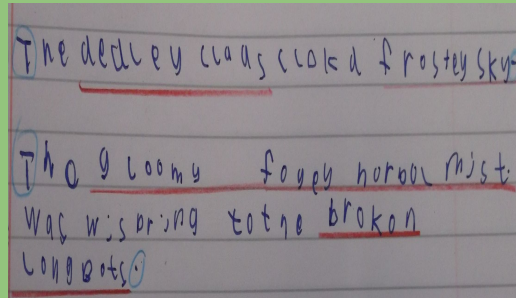 The dedley claas cloka frostey sky
Tho gloomy fogey horool mist.
Was wispring tothe brokon
longbots.